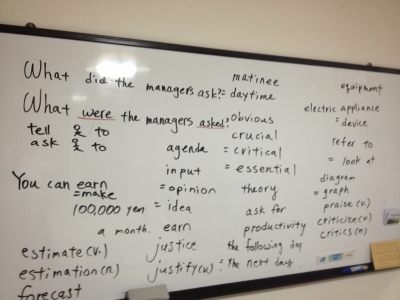 What did the managers ask?
What were the managers asked?
tell 人 to
ask 人 to
You can earn
=make
100,000 yen
a month.
estimate (v.)
estimation (n.)
forecast
matinee
= daytime
obvious
crucial
= critical
= essential
agenda
input
= opinion
= idea
earn
justice
justify (v.)
theory
ask for
productivity
the following day
= the next day
equipment
electric appliance
= device
refer to
= look at
diagram
= graph
praise (v.)
criticize (v.)
critics (n.)